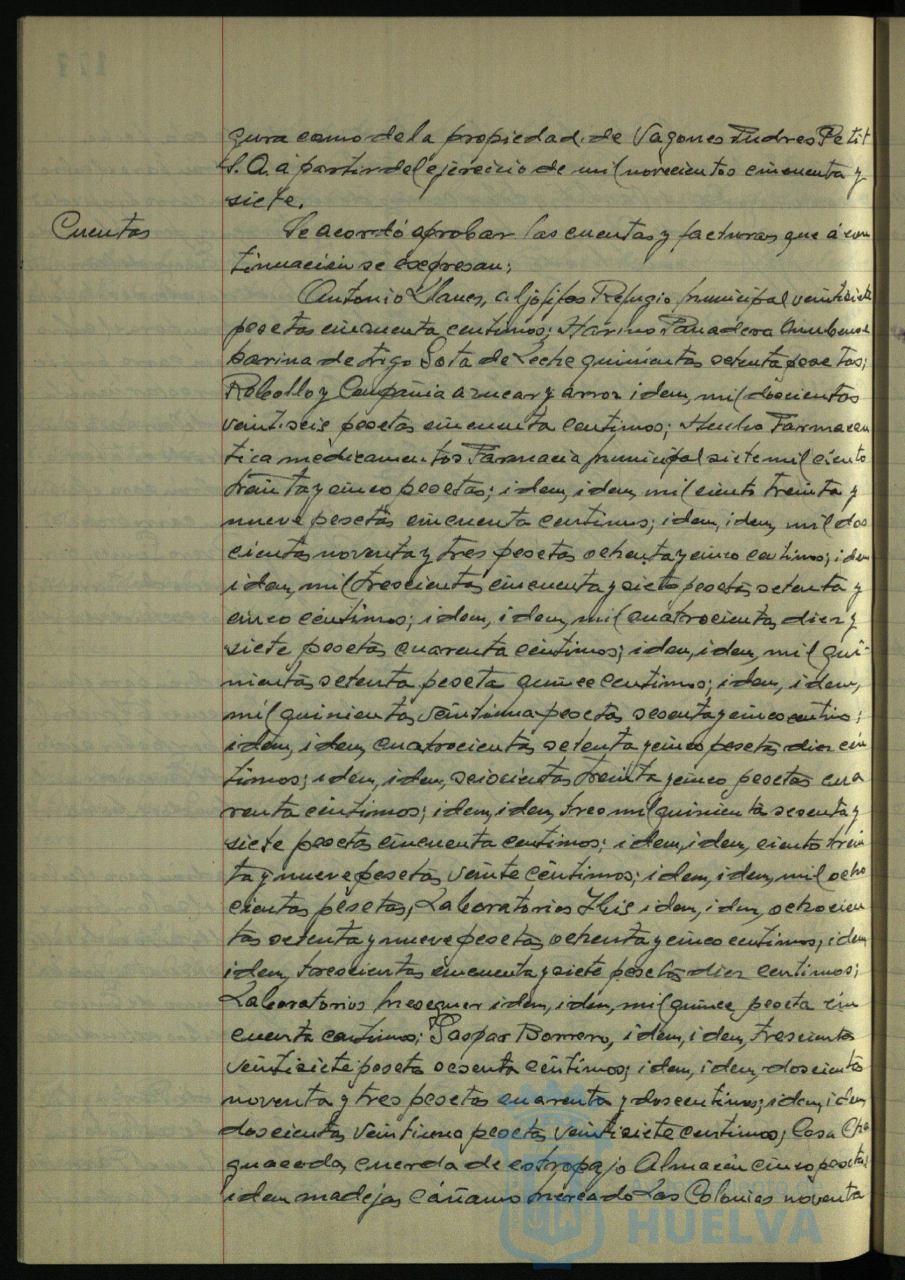 gura como de la propiedad de Vagones Pudres Petit
S.A. á partir del ejercicio de mil novecientos cincuenta y
siete.
Cuentas
Se acordó aprobar las cuentas y facturas que á con
tinuación se expresan:
Antonio Llanes, aljofifas Refugio municipal veintisiete
pesetas cincuenta centimos; Harino Panadera Onubense
harina de trigo Gota de Leche quinientas setenta pesetas;
Rebollo y Compañia azucar y arroz idem, mil doscientas
veintiseis pesetas cincuenta centimos; Huelva Farmaceu
tica medicamentos Farmacia municipal siete mil ciento
treinta y cinco pesetas; idem, idem, mil ciento treinta y
nueve pesetas cincuenta centimos; idem, idem, mil dos
cientas noventa y tres pesetas ochenta y cinco centimos; idem
idem, mil trescientas cincuenta y siete pesetas setenta y
cinco centimos; idem, idem, mil cuatrocientas diez y
siete pesetas cuarenta centimos; idem, idem, mil qui-
nientas setenta peseta quince centimos; idem, idem,
mil quinientas veintiuna pesetas sesenta y cinco centimos;
idem, idem, cuatrocientas setenta y cinco pesetas diez cén
timos; idem, idem, seiscientas treinta y cinco pesetas cua
renta centimos; idem, idem, tres mil quinientas sesenta y
siete pesetas cincuenta centimos; idem, idem, ciento trein
ta y nueve pesetas veinte céntimos; idem, idem, mil ocho
cientas pesetas; Laboratorios Ibis idem, idem, ochocien
tas setenta y nueve pesetas ochenta y cinco centimos; idem
idem, trescientas cincuenta y siete pesetas diez centimos;
Laboratorios idem, idem, mil quince peseta cin
cuenta centimos; Gaspar Borrero, idem, idem, trescientas
veintisiete peseta sesenta céntimos; idem, idem, doscientas
noventa y tres pesetas cuarenta y dos centimos; idem, idem
doscientas veintiuna pesetas veintisiete centimos; Casa Cha
guaceda, cuerda de estropajo Almacén cinco pesetas;
idem madejas cáñamo mercado Las Colonias noventa
Ayuntamiento de
HUELVA